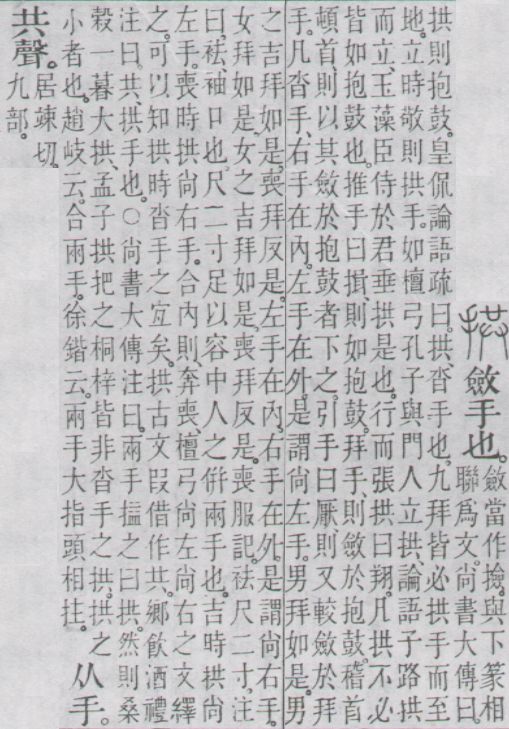 拱 斂手也。
斂當作撿。與下篆相
聯爲文。尚書大傳曰。
拱則抱鼓。皇侃論語疏曰。拱、沓手也。九拜皆必拱手而至
地。立時敬則拱手。如檀弓孔子與門人立拱、論語子路拱
而立、玉藻臣侍於君垂拱是也。行而張拱曰翔。凡拱不必
皆如抱鼓也。推手曰揖、則如抱鼓。拜手、則斂於抱鼓。稽首
頓首、則以其斂於抱鼓者下之。引手曰厭、則又較斂於拜
手。凡沓手、右手在內。左手在外。是謂尚左手。男拜如是。男
之吉拜如是。喪拜反是。左手在內。右手在外。是謂尚右手。
女拜如是。女之吉拜如是。喪拜反是。喪服記。袪尺二寸。注
曰。袪、袖口也。尺二寸足以容中人之倂兩手也。吉時拱尚
左手。喪時拱尚右手。合內則、奔喪、檀弓尚左尚右之文繹
之。可以知拱時沓手之宜矣。拱古文叚借作共。鄉飮酒禮
注曰。共、拱手也。○尚書大傳注曰。兩手搤之曰拱。然則桑
穀一暮大拱、孟子拱把之桐梓皆非沓手之拱。拱之
小者也。趙岐云。合兩手。徐鍇云。兩手大指頭相拄。
从手。
共聲。
居竦切。
九部。